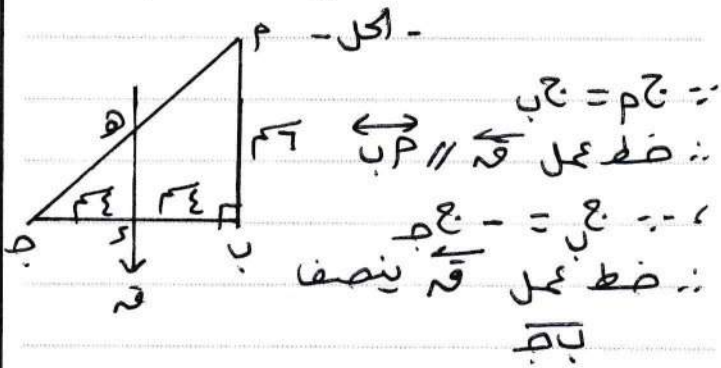 - الحل -
∵ ج م = ج ب
∴ خط عمل ق // م ب
، ∵ ج ب = - ج ج
∴ خط عمل ق ينصف
ب ج
م
ه
٦ سم
٤ سم
٤ سم
ج
د
ب
ق